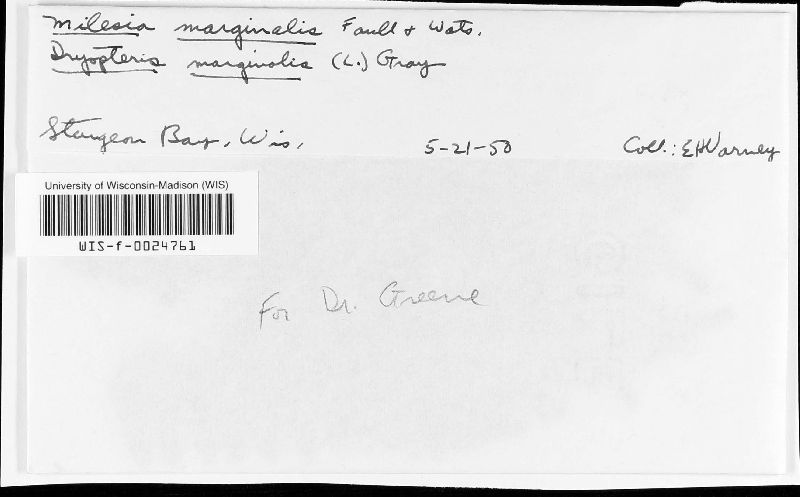 Milesia marginalis Faull & Wats.
Dryopteris marginalis (L.) Gray
Sturgeon Bay, Wis. 5-21-50 Coll.: EHVarney
University of Wisconsin-Madison (WIS)
WIS-f-0024761
For Dr. Greene